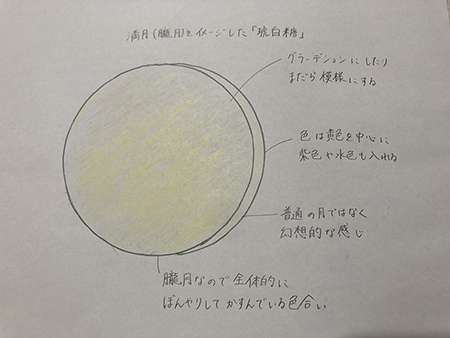 満月(朧月)をイメージした「琥珀糖」
グラーデションにしたり
まだら模様にする
色は黄色を中心に
紫色や水色も入れる
普通の月ではなく
幻想的な感じ
朧月なので全体的に
ぼんやりしてかすんでいる色合い